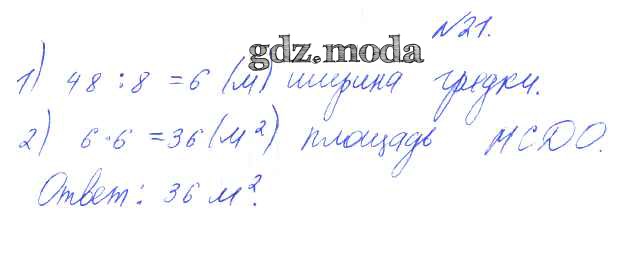 №21.
gdz.moda
1) 48 : 8 = 6 (м) ширина грядки.
2) 6·6 = 36 (м²) площадь МСДО.
Ответ: 36 м².